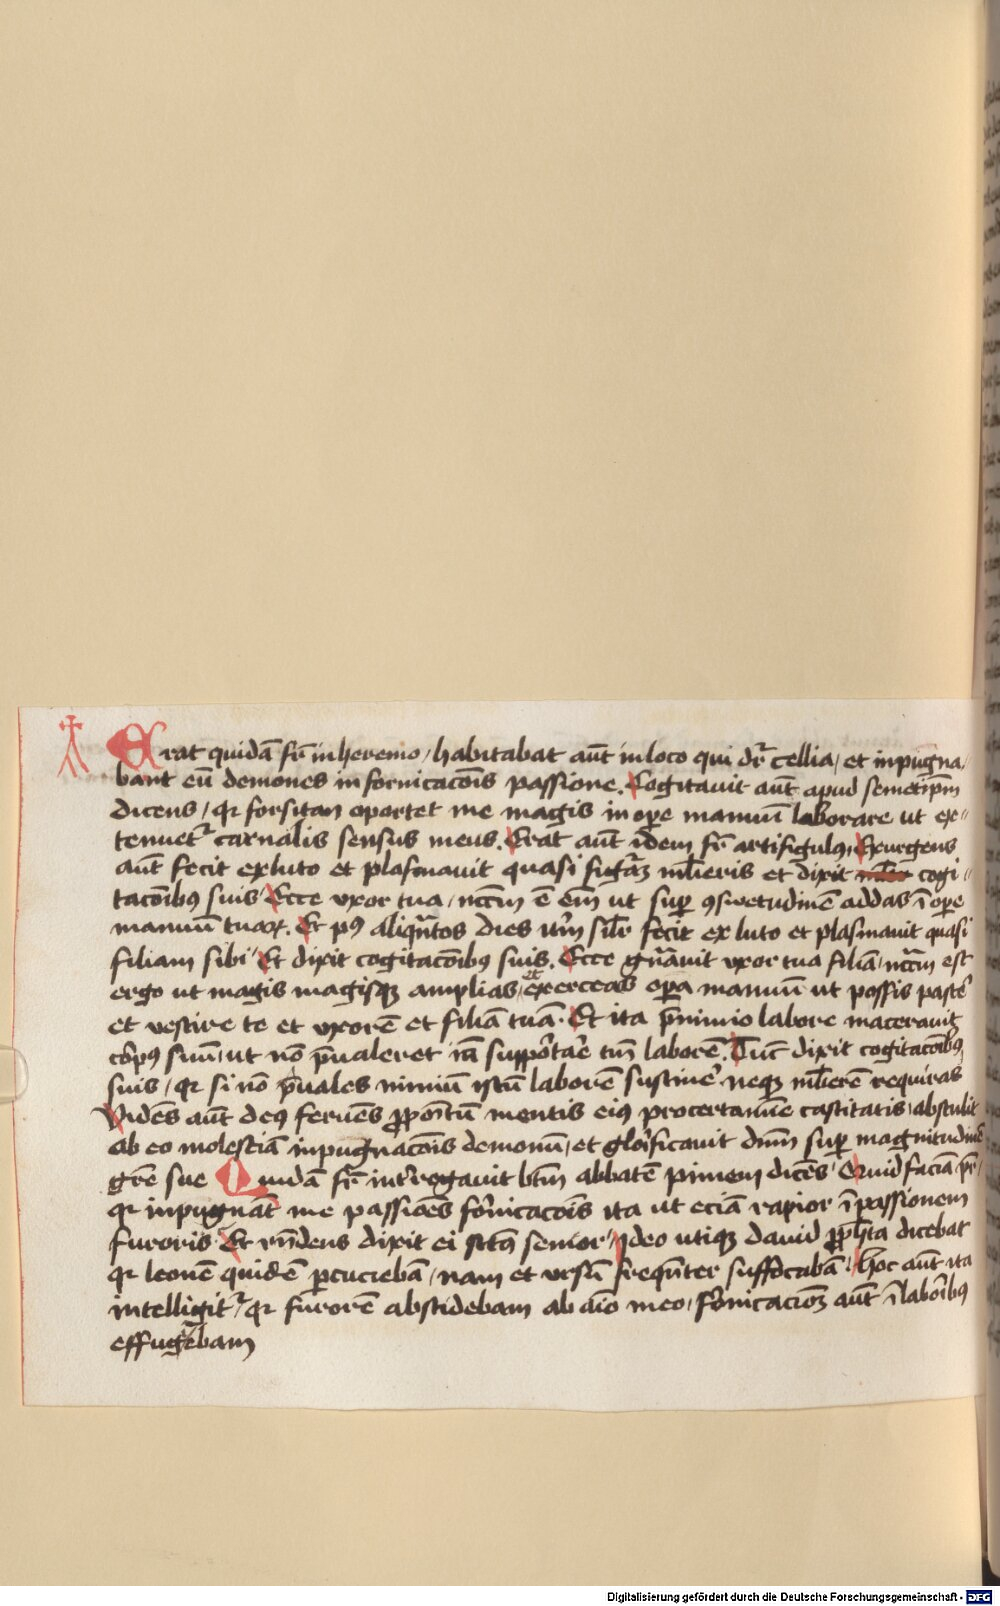 Erat quidā fr̄ in heremo / habitabat aūt in loco qui dr̄ cellia / et inpugna/
bant eū demones in fornicacōis passione. Cogitavit aūt apud semetip̄m
dicens / qr forsitan oportet me magis in oꝑe manuū laborare ut ex⸗
tenuet᷑ carnalis sensus meus. Erat aūt idem fr̄ artifigulꝰ, Exurgens
aūt fecit ex luto et plasmavit quasi figʳ̄am ml̄ieris et dixit cogi⸗
tacōibꝰ suis Ecce vxor tua / nccm̄ ē em̄ ut suꝑ ꝯswetudinē addas ī oꝑe
manuū tuaꝝ. Et pꝰ aliqn̄tos dies itm̄ sil̄r fecit ex luto et plasmavit quasi
filiam sibi Et dixit cogitacōibꝰ suis. Ecce gn̄avit vxor tua filiā / nccm̄ est
ergo ut magis magisqꝫ amplias / et exerceas oꝑa manuū ut possis pasc̄e
et vestire te et vxorē et filiā tuā. Et ita p̄ nimio labore maceravit
corpꝰ suū / ut nō p̄ualeret iā suppōtar̄e tm̄ laborē. Tunc dixit cogitacōibꝰ
suis / qr si nō p̄uales nimiū istū laborē sustiner̄ neqꝫ ml̄ierē requiras
Vidēs aūt deꝰ feruēs ꝓpōitū mentis eiꝰ pro certamīe castitatis / abstulit
ab eo molestiā inpugnacōis demonū / et glōificavit dnm̄ suꝑ magnitudinē
grē sue Quidā fr̄ int̄rogavit btm̄ abbatē pimem dicēs Quid faciā pr̄/
qr inpugnāt me passiōes fōnicacōis ita ut eciā rapior ī passionem
furoris Et rn̄dens dixit ei sctūs senior / Ideo utiqꝫ david ꝓph̄ta dicebat
qr leonē quidē ꝑcuciebā / nam et vrsū freqn̄ter suffocabā. Hoc aūt ita
intelligit᷑ / qr furorē abscidebam ab aīo meo / fōnicaciōꝫ aūt ī labōibꝰ
effugebam
Digitalisierung gefördert durch die Deutsche Forschungsgemeinschaft - DFG